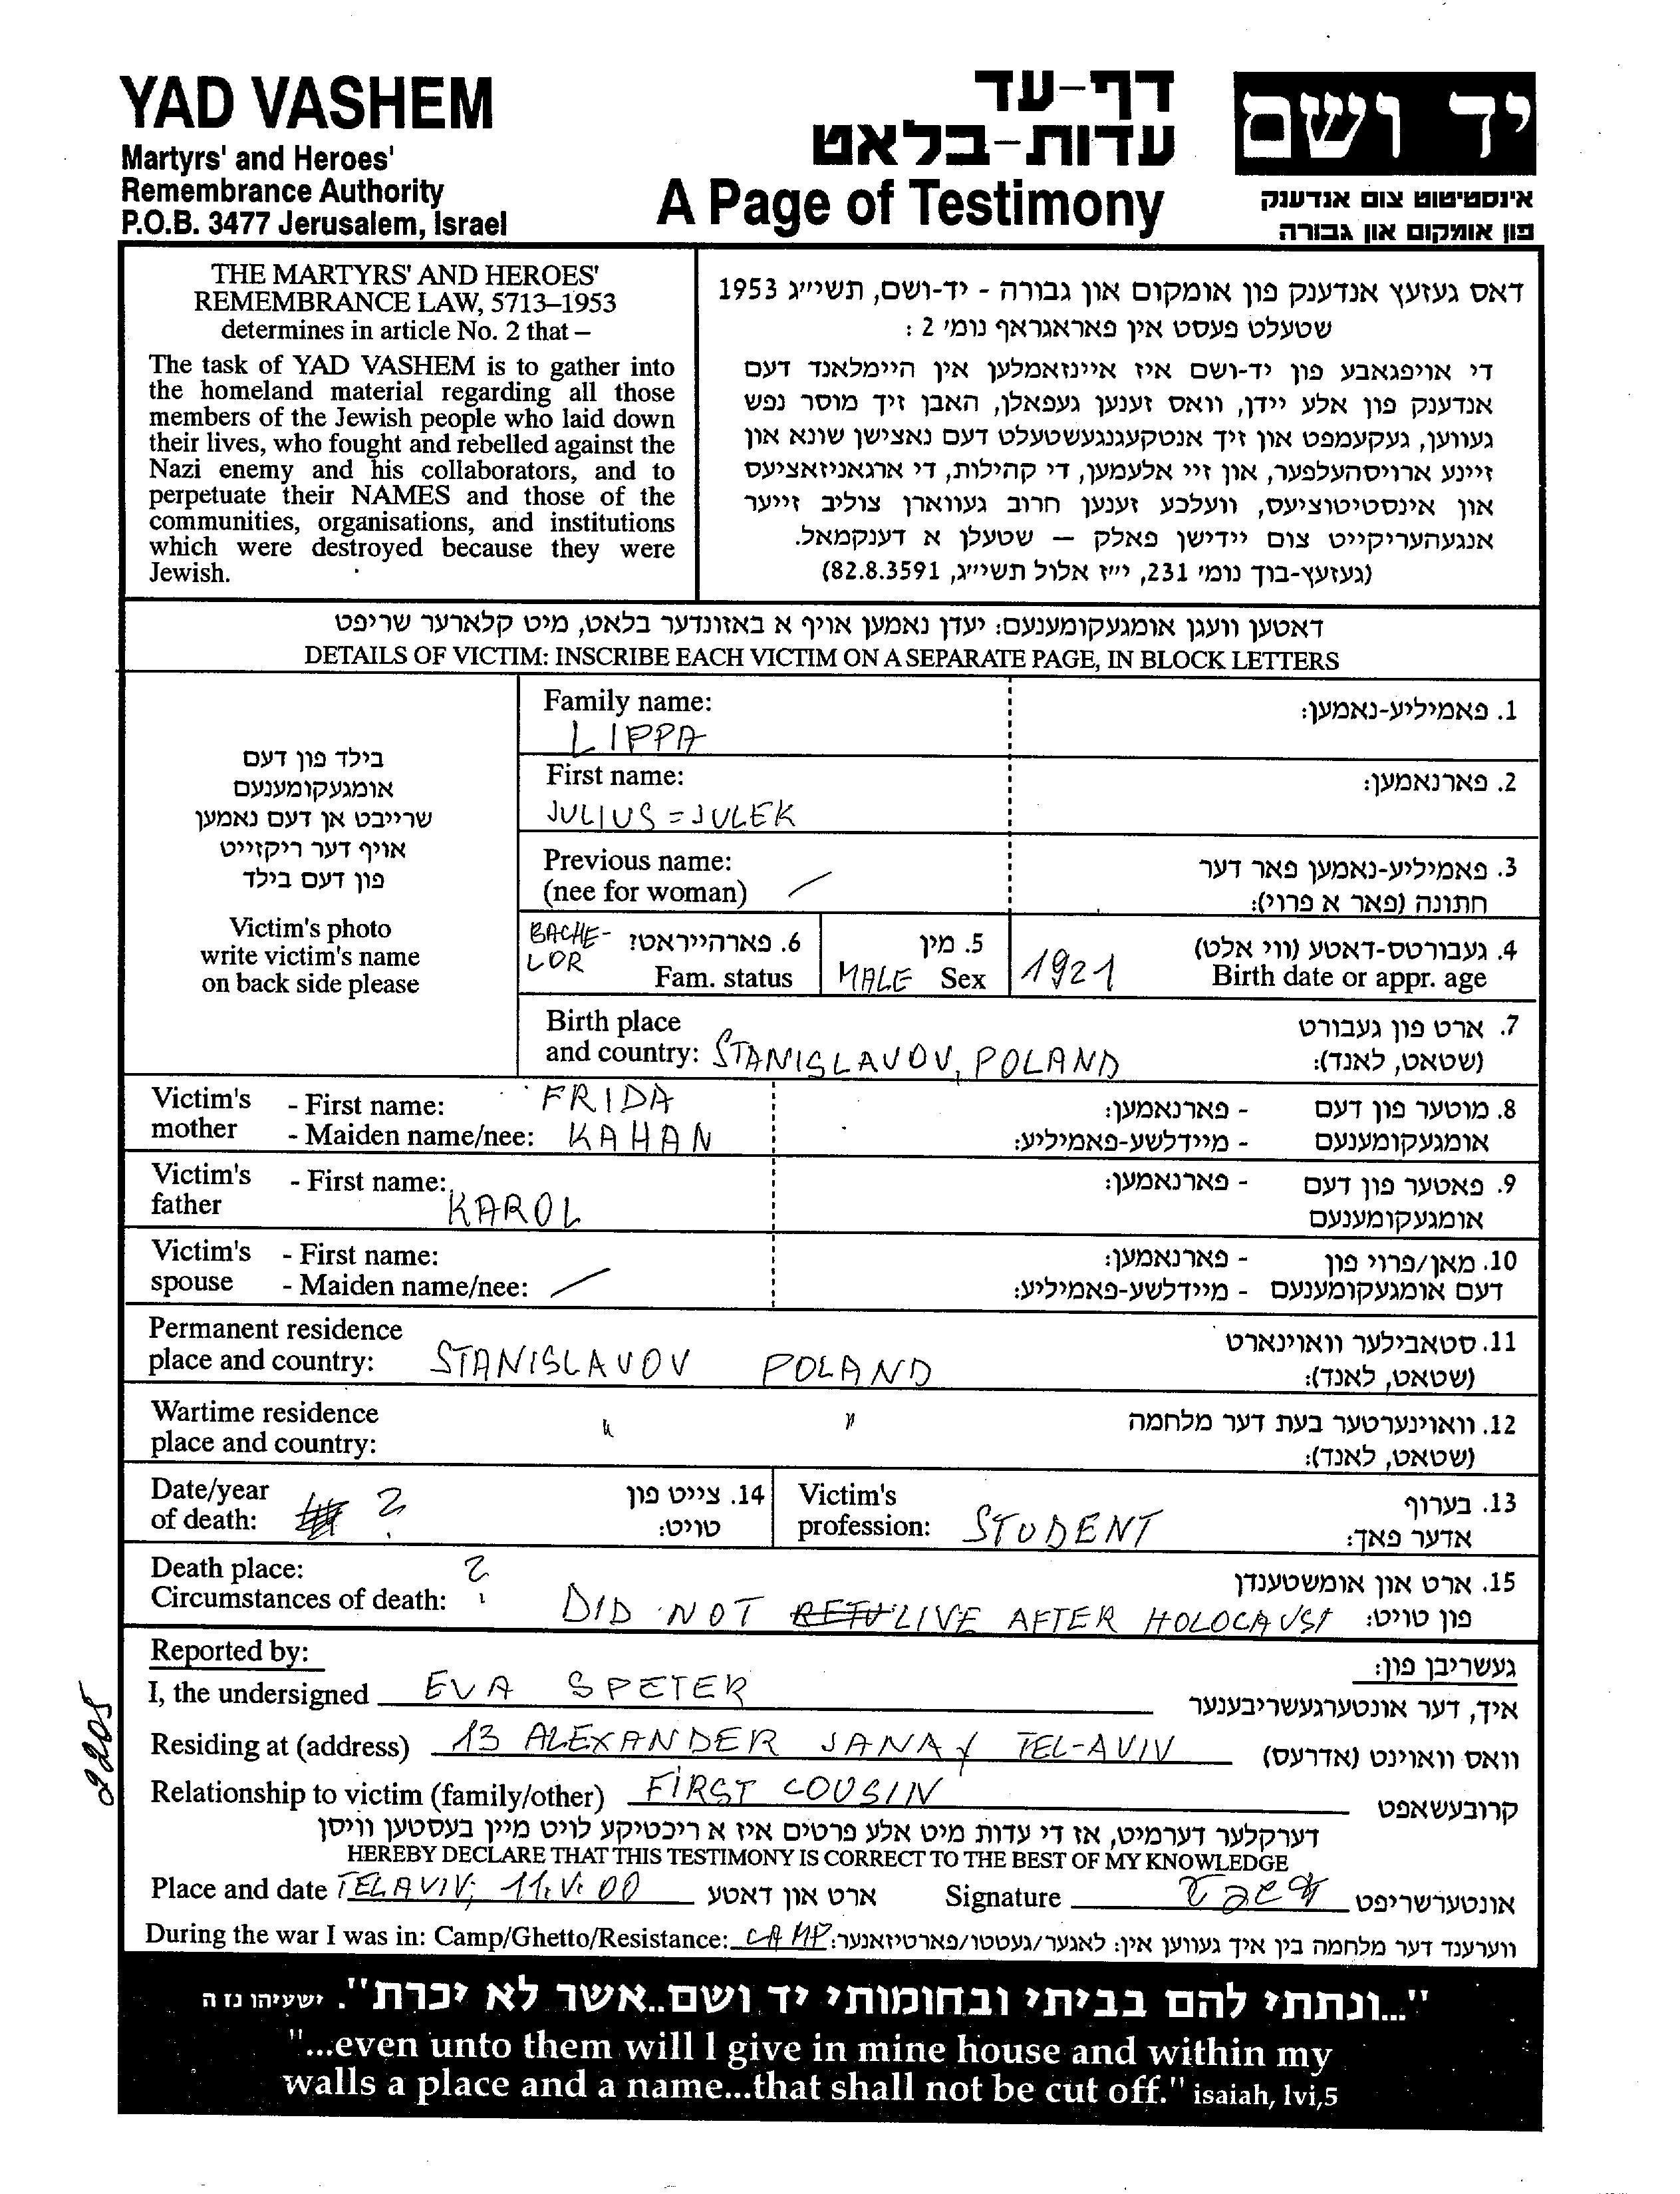 YAD VASHEM
Martyrs' and Heroes'
Remembrance Authority
P.O.B. 3477 Jerusalem, Israel
דף-עד
עדות-בלאט
A Page of Testimony
יד ושם
אינסטיטוט צום אנדענק
פון אומקום און גבורה
THE MARTYRS' AND HEROES'
REMEMBRANCE LAW, 5713–1953
determines in article No. 2 that –
The task of YAD VASHEM is to gather into
the homeland material regarding all those
members of the Jewish people who laid down
their lives, who fought and rebelled against the
Nazi enemy and his collaborators, and to
perpetuate their NAMES and those of the
communities, organisations, and institutions
which were destroyed because they were
Jewish.
דאס געזעץ אנדענק פון אומקום און גבורה - יד-ושם, תשי״ג 1953
שטעלט פעסט אין פאראגראף נומ׳ 2 :
די אויפגאבע פון יד-ושם איז איינזאמלען אין היימלאנד דעם
אנדענק פון אלע יידן, וואס זענען געפאלן, האבן זיך מוסר נפש
געווען, געקעמפט און זיך אנטקעגנגעשטעלט דעם נאצישן שונא און
זיינע ארויסהעלפער, און זיי אלעמען, די קהילות, די ארגאניזאציעס
און אינסטיטוציעס, וועלכע זענען חרוב געווארן צוליב זייער
אנגעהעריקייט צום יידישן פאלק — שטעלן א דענקמאל.
(געזעץ-בוך נומ׳ 132, י״ז אלול תשי״ג, 1953.8.28)
דאטען וועגן אומגעקומענעם: יעדן נאמען אויף א באזונדער בלאט, מיט קלארער שריפט
DETAILS OF VICTIM: INSCRIBE EACH VICTIM ON A SEPARATE PAGE, IN BLOCK LETTERS
בילד פון דעם
אומגעקומענעם
שרייבט אן דעם נאמען
אויף דער ריקזייט
פון דעם בילד
Victim's photo
write victim's name
on back side please
Family name: 1. פאמיליע-נאמען:
LIPPA
First name: 2. פארנאמען:
JULIUS = JULEK
Previous name: 3. פאמיליע-נאמען פאר דער
(nee for woman) חתונה (פאר א פרוי):
BACHE- 6. פארהייראט? 5. מין 4. געבורטס-דאטע (ווי אלט)
LOR Fam. status MALE Sex 1921 Birth date or appr. age
Birth place 7. ארט פון געבורט
and country: STANISLAVOV, POLAND (שטאט, לאנד):
Victim's - First name: FRIDA - פארנאמען: 8. מוטער פון דעם
mother - Maiden name/nee: KAHAN - מיידלשע-פאמיליע: אומגעקומענעם
Victim's - First name: - פארנאמען: 9. פאטער פון דעם
father KAROL אומגעקומענעם
Victim's - First name: - פארנאמען: 10. מאן/פרוי פון
spouse - Maiden name/nee: - מיידלשע-פאמיליע: דעם אומגעקומענעם
Permanent residence 11. סטאבילער וואוינארט
place and country: STANISLAVOV POLAND (שטאט, לאנד):
Wartime residence " " 12. וואוינערטער בעת דער מלחמה
place and country: (שטאט, לאנד):
Date/year ? 14. צייט פון Victim's 13. בערוף
of death: טויט: profession: STUDENT אדער פאך:
Death place: ? 15. ארט און אומשטענדן
Circumstances of death: DID NOT RETU LIVE AFTER HOLOCAUST פון טויט:
Reported by: געשריבן פון:
I, the undersigned EVA SPETER איך, דער אונטערגעשריבענער
Residing at (address) 13 ALEXANDER JANAY TEL-AVIV וואס וואוינט (אדרעס)
Relationship to victim (family/other) FIRST COUSIN קרובעשאפט
דערקלער דערמיט, אז די עדות מיט אלע פרטים איז א ריכטיקע לויט מיין בעסטען וויסן
HEREBY DECLARE THAT THIS TESTIMONY IS CORRECT TO THE BEST OF MY KNOWLEDGE
Place and date TEL AVIV, 11.V.00 ארט און דאטע Signature אונטערשריפט
During the war I was in: Camp/Ghetto/Resistance: CAMP ווערענד דער מלחמה בין איך געווען אין: לאגער/געטטו/פארטיזאנער:
2205
"...ונתתי להם בביתי ובחומותי יד ושם..אשר לא יכרת". ישעיהו נו ה
"...even unto them will I give in mine house and within my
walls a place and a name...that shall not be cut off." isaiah, lvi,5